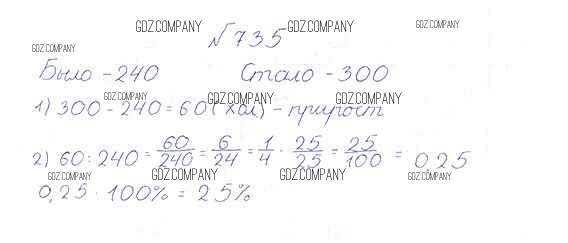 GDZ.COMPANY GDZ.COMPANY GDZ.COMPANY
№735
GDZ.COMPANY
Было - 240 Стало - 300
GDZ.COMPANY GDZ.COMPANY GDZ.COMPANY
1) 300 - 240 = 60 (хол) - прирост
2) 60 : 240 = 60/240 = 6/24 = 1/4 · 25/25 = 25/100 = 0,25
GDZ.COMPANY GDZ.COMPANY GDZ.COMPANY GDZ.COMPANY
0,25 · 100% = 25%